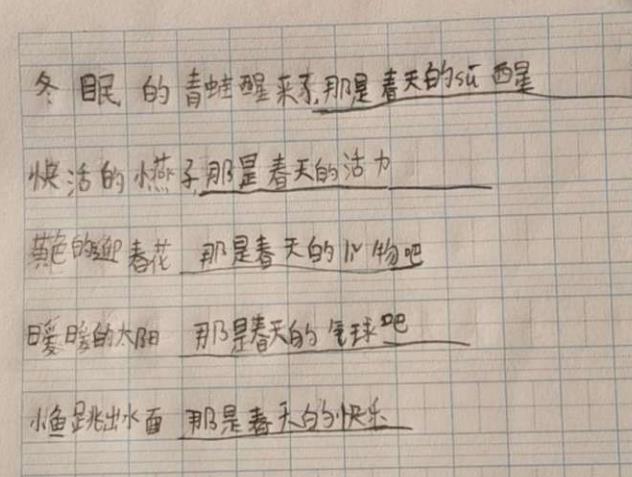 冬眠的青蛙醒来了,那是春天的sū醒
快活的小燕子,那是春天的活力
黄色的迎春花 那是春天的礼物吧
暖暖的太阳 那是春天的气球吧
小鱼跳出水面 那是春天的快乐